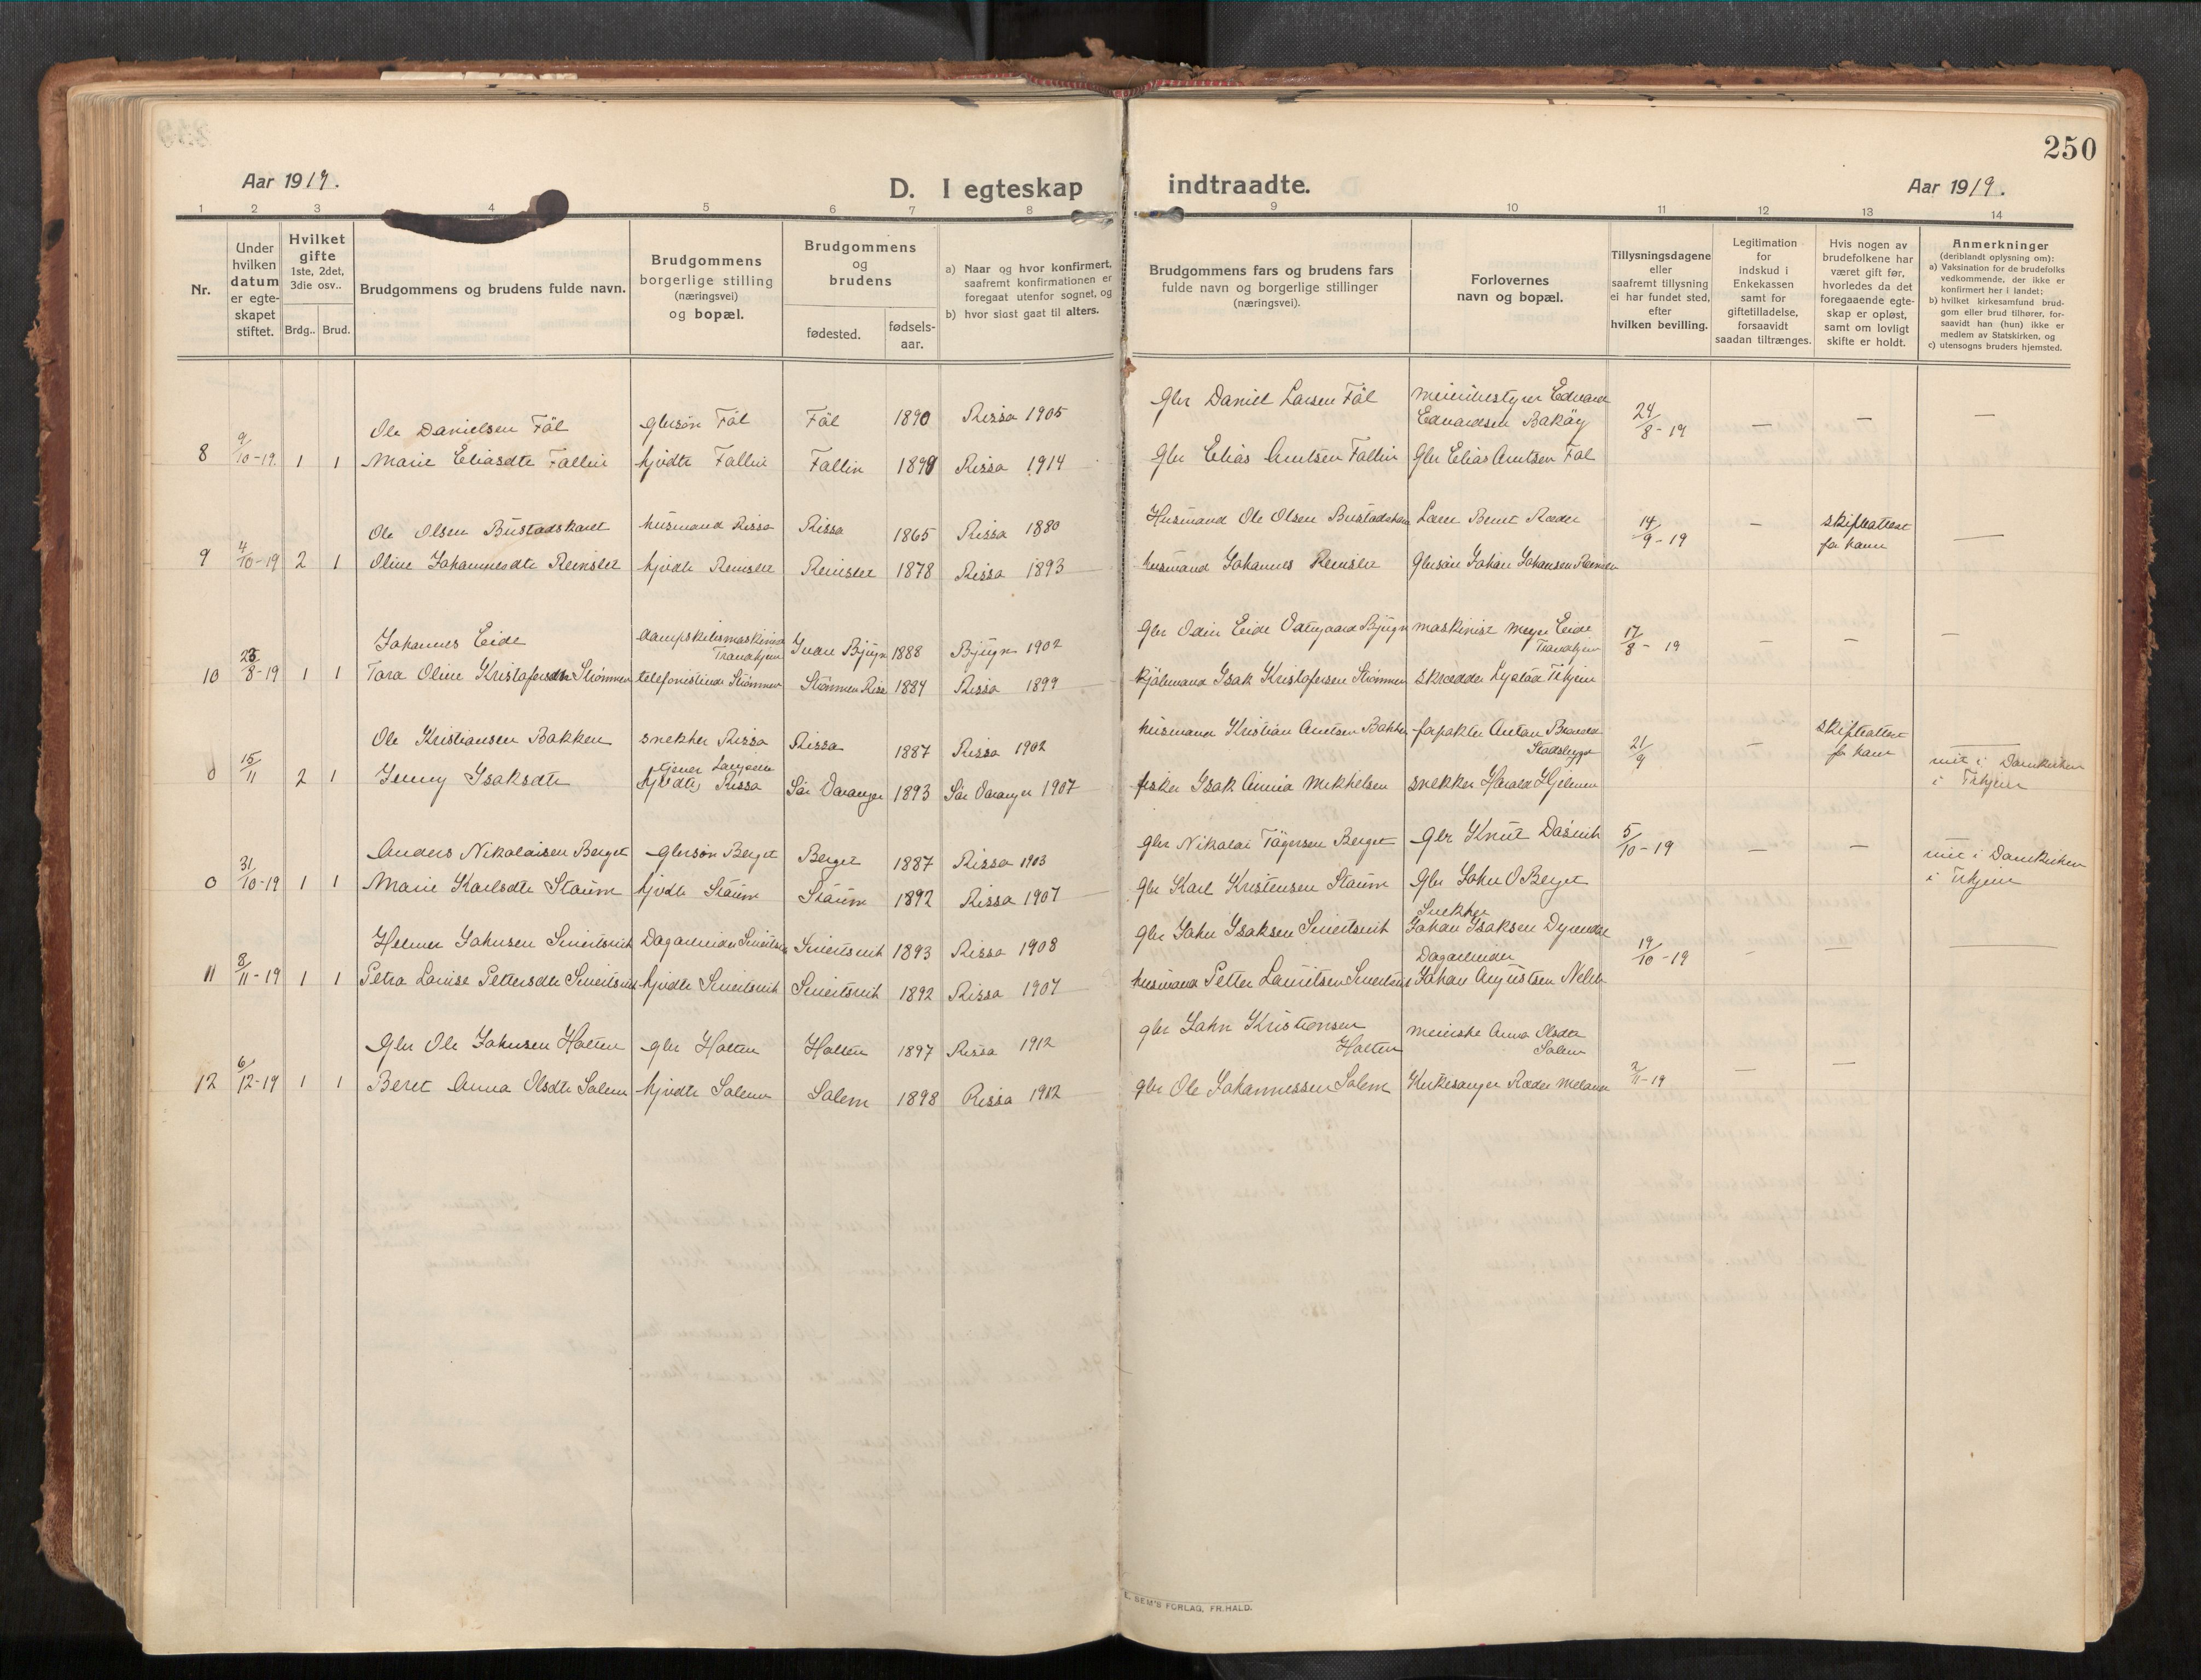 250
Aar 1919.
D. I egteskap indtraadte.
Aar 1919.
1 2 3 4 5 6 7 8 9 10 11 12 13 14
Nr.
Under hvilken datum er egte-skapet stiftet.
Hvilket gifte
1ste, 2det, 3die osv..
Brdg.. Brud.
Brudgommens og brudens fulde navn.
Brudgommens borgerlige stilling (næringsvei) og bopæl.
Brudgommens og brudens
fødested.
fødsels-aar.
a) Naar og hvor konfirmert, saafremt konfirmationen er foregaat utenfor sognet, og
b) hvor sidst gaat til alters.
Brudgommens fars og brudens fars fulde navn og borgerlige stillinger (næringsvei).
Forlovernes navn og bopæl.
Tillysningsdagene eller saafremt tillysning ei har fundet sted, efter hvilken bevilling.
Legitimation for indskud i Enkekassen samt for giftetilladelse, forsaavidt saadan tiltrænges.
Hvis nogen av brudefolkene har været gift før, hvorledes da det foregaaende egte-skap er opløst, samt om lovligt skifte er holdt.
Anmerkninger
(deriblandt oplysning om):
a) Vaksination for de brudefolks vedkommende, der ikke er konfirmert her i landet;
b) hvilket kirkesamfund brud-gom eller brud tilhører, for-saavidt han (hun) ikke er medlem av Statskirken, og
c) utensogns bruders hjemsted.
Ole Danielsen Föl glersön Föl Föl 1890 Rissa 1905 gbr Daniel Larsen Föl meieribestyrer Edvard Edvardsen Bakøy 24/8-19 — — —
8 9/10-19 1 1 Marie Eliasdtr Fallin hjvdtr Fallin Fallin 1899 Rissa 1914 gbr Elias Arntsen Fallin Gbr Elias Arntsen Föl
Ole Olsen Bustadskaret husmand Rissa Rissa 1865 Rissa 1880 Husmand Ole Olsen Lærer Bernt Ræder 14/9-19 — skifteattest —
9 4/10-19 2 1 Oline Johannesdtr Reinsler hjvdtr Reinsler Reinsler 1878 Rissa 1893 husmand Johannes Reinsler Johan Johansen
Johannes Eide Bjugn 1888 Bjugn 1902 Gbr Odin Eide Bjugn maskinist Eide 17/8-19 — — —
10 8-19 1 1 Tora Oline Kristofersdtr Strömmen telefonistinde Strömmen Strömmen 1884 Rissa 1899 Isak Kristofersen Strömmen skrædder Lystad
Ole Kristiansen Bakken snekker Rissa Rissa 1887 Rissa 1902 husmand Kristian Arntsen Bakken forpakter Anton Stadsbygd 21/9 — skifteattest
tjener
0 15/11 2 1 Jenny Isaksdtr hjvdtr, Rissa Sör Varanger 1893 Sör Varanger 1907 fisker Isak Mikkelsen snekker Harald Hjelmen i Domkirken i
Anders Nikolaisen Berget Gbrsön Berget Berget 1887 Rissa 1903 gbr Nikolai Berget gbr Knut 5/10-19 — — i Domkirken i
0 31/10-19 1 1 Marie Karlsdtr Staum hjvdtr Staum Staum 1892 Rissa 1907 gbr Karl Kristensen Staum Gbr John O Berget
Snekker
Helmer Johnsen Dagarbeider 1893 Rissa 1908 gbr John Isaksen Johan Isaksen Dyrendal 19/10-19 — — —
Dagarbeider
11 8/11-19 1 1 Petra Lovise Pettersdtr hjvdtr 1892 Rissa 1907 husmand Petter Lauritsen Johan Augustsen
Gbr Ole Johnsen Holten gbr Holten Holten 1897 Rissa 1912 gbr John Kristiansen Holten meierske Anna Olsdtr Solem 2/11-19 — —
12 6/12-19 1 1 Beret Anna Olsdtr Solem hjvdtr Solem Solem 1898 Rissa 1912 gbr Ole Johannessen Solem Kirkesanger Ræder
E. SEM'S FORLAG, FR.HALD.